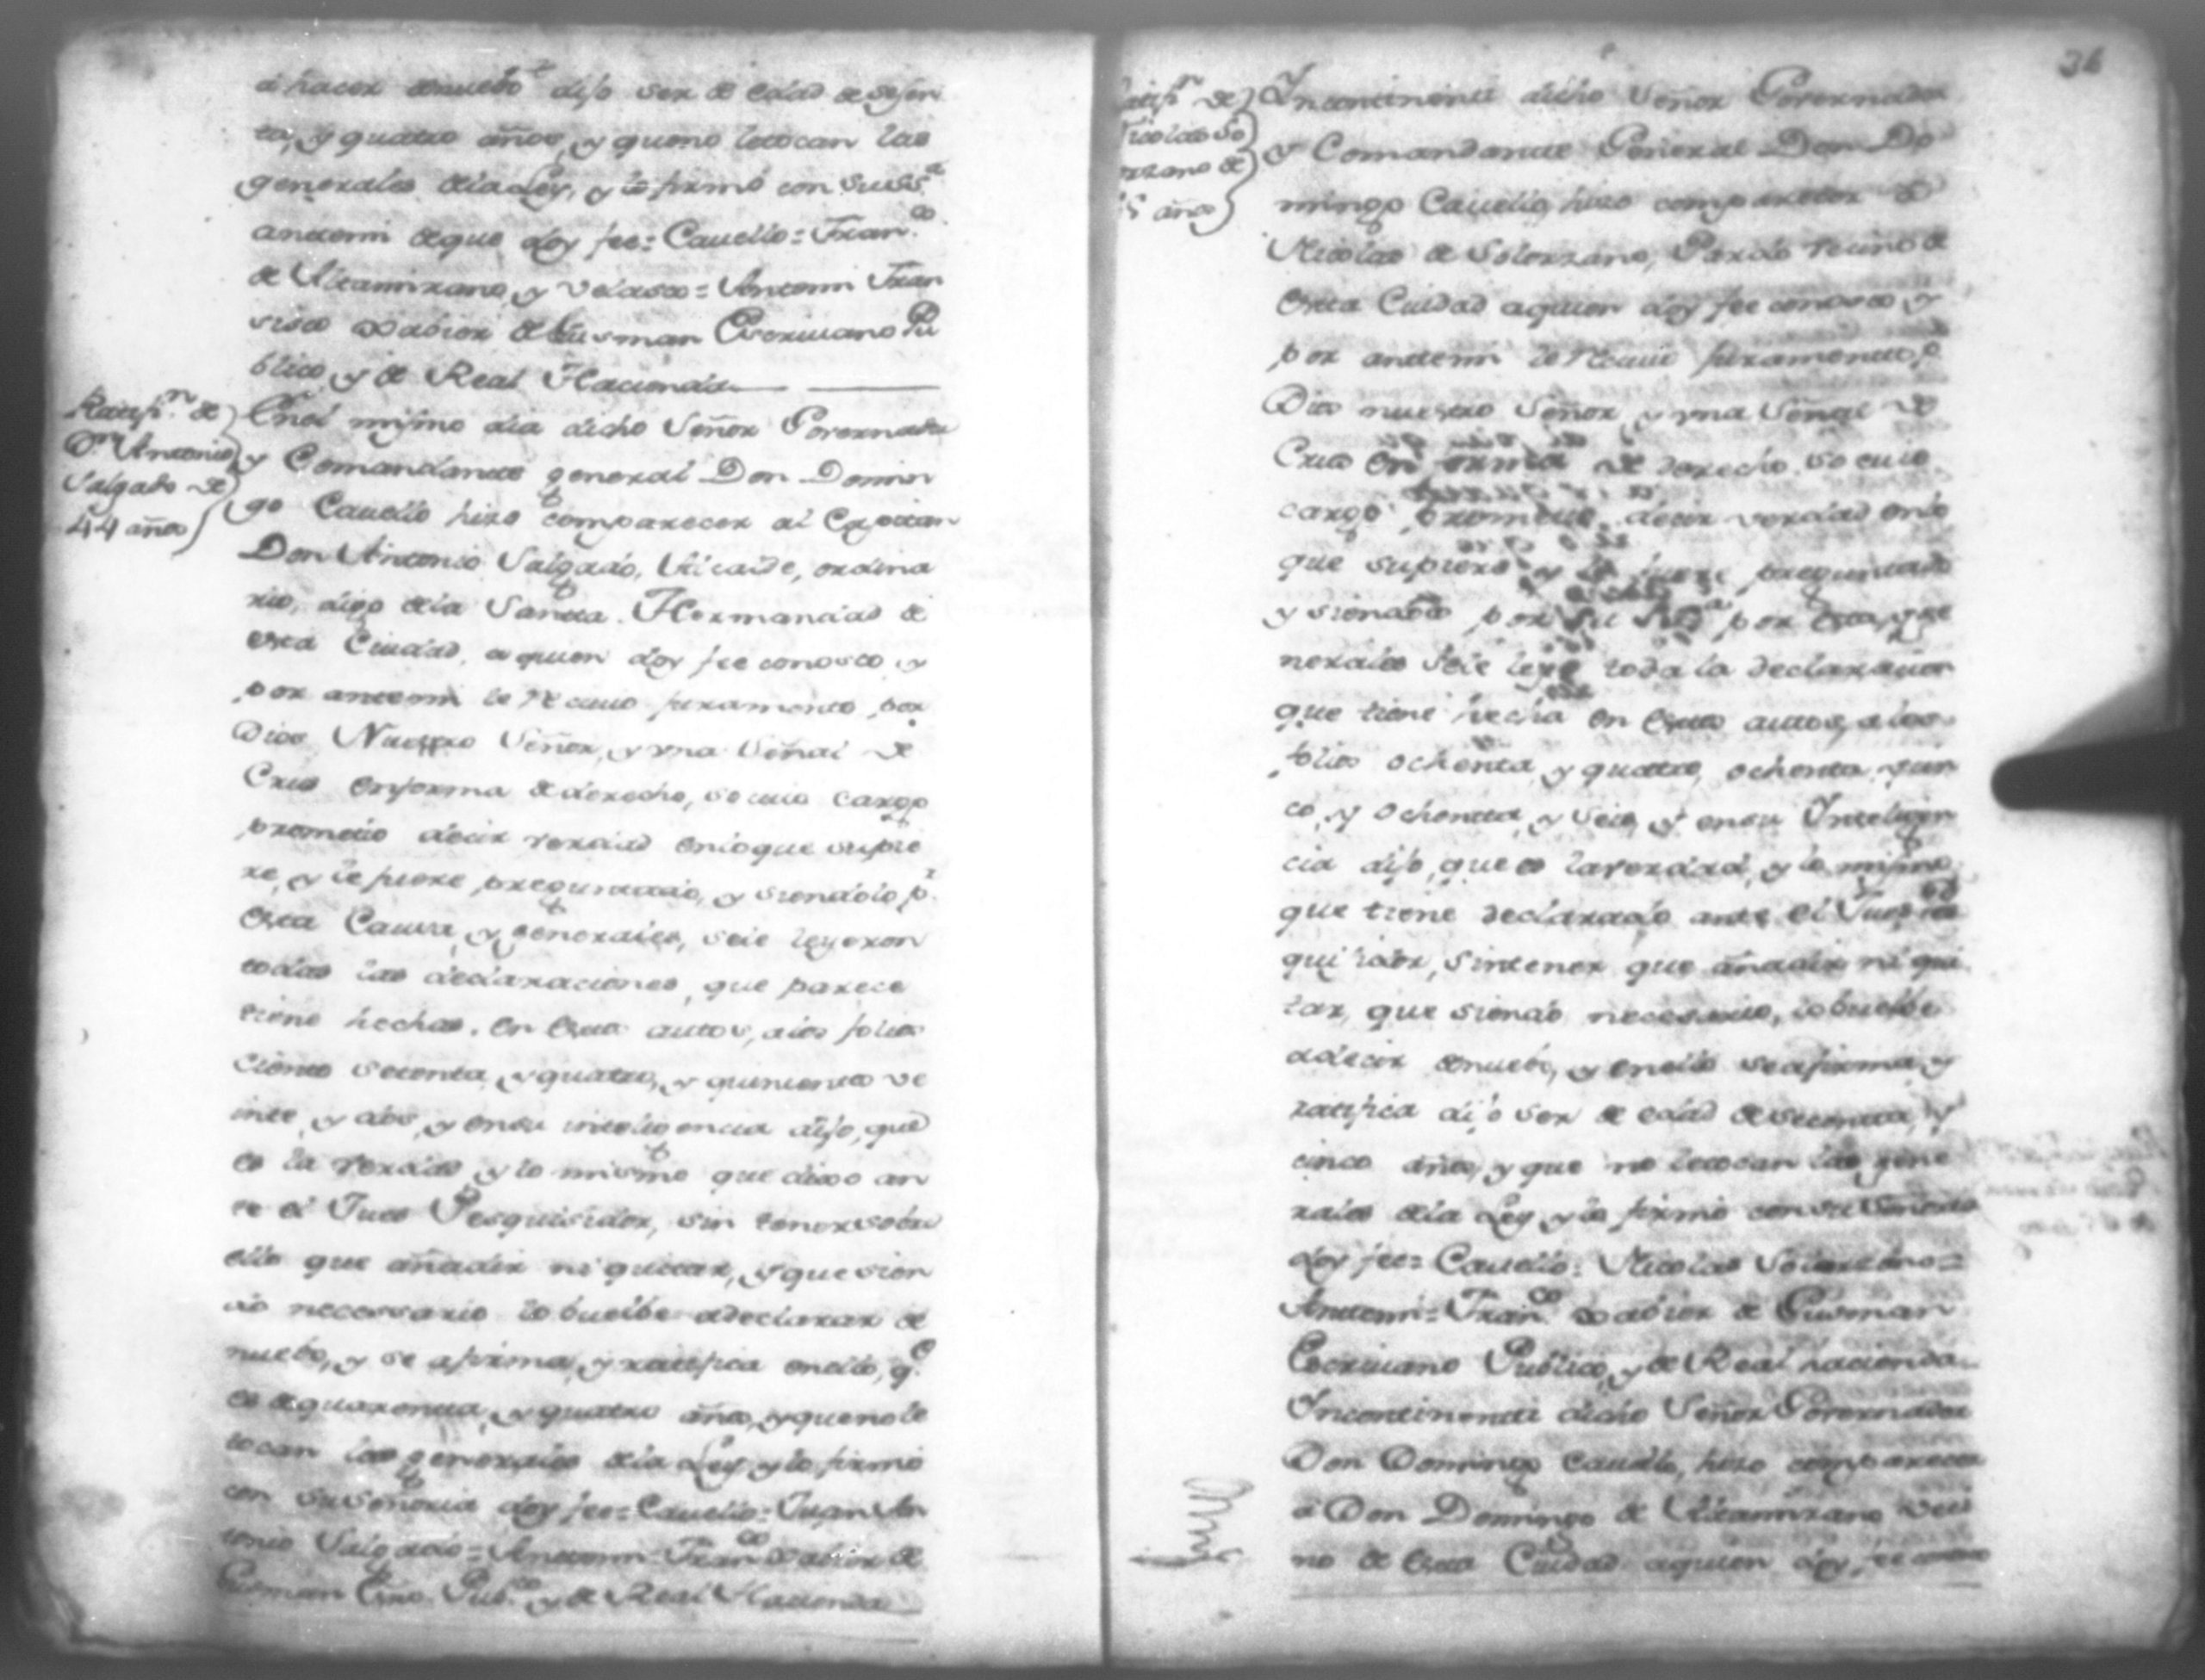 á hacer denuebo dijo ser de edad de sesen
ta, y quatro años, y queno letocan las
generales dela Ley, y lo firmó con suss.ª
antemi deque doy fee= Cauello= Fran.co
de Altamirano, y Velasco= Antemi Fran
sisco Xabier de Gusman Escriuano Pu
blico, y de Real Hacienda
Ratifi.n de
D.n Antonio
Salgado de
44 años
Enel mismo dia dicho Señor Governador
y Comandante general Don Domin
go Cauello hizo comparecer al Capitan
Don Antonio Salgado, Alcalde, ordina
rio, digo dela Santa Hermandad de
esta Ciudad, aquien doy fee conosco, y
por antemi le Reciuio juramento por
Dios Nuestro Señor, y vna Señal de
Crus enforma dederecho, so cuio cargo
prometio decir verdad enloque supie
re, y le fuere preguntado, y siendolo p.r
esta Causa, y generales, sele leyeron
todas las declaraciones, que parece
tiene hechas en estos autos, alos folios
ciento setenta, y quatro, y quinientos ve
inte, y dos, y ensu inteligencia dijo, que
es la verdad, y lo mismo que dixo an
te el Jues Pesquisidor, sin tenersobre
ello que añadir ni quitar, y que sien
do necessario lo buelbe adeclarar de
nuebo, y se afirma, y ratifica enello, q.e
es dequarenta, y quatro años, y quenole
tocan las generales dela Ley, y lo firmó
con suseñoria doy fee= Cauello= Juan An
tonio Salgado= Antemi= Fran.co Xabier de
Gusman Esno. Pub.co y de Real Hacienda
36
ratifi.n de
Nicolas So
orzano de
5 años
Incontinenti dicho Señor Governador
y Comandante General Don Do
mingo Cauello, hizo comparecer á
Nicolas de Solorzano, Pardo vecino de
esta Ciudad aquien doy fee conosco, y
por antemi le Reciui juramento, p.r
Dios nuestro Señor, y vna Señal de
Crus en forma de derecho, so cuio
cargo prometio decir verdad enlo
que supiere y le fuere preguntado
y siendolo por su ss.ª por esta, y ge
nerales sele leyó toda la declaracion
que tiene hecha en estos autos, alos
folios ochenta, y quatro, ochenta, y cin
co, y ochenta, y seis, y ensu Inteligen
cia dijo, que es laverdad, y lo mismo
que tiene declarado ante el Jues Pes
quisidor, sintener que añadir ni qui
tar, que siendo necesario, lo buelbe
adecir denuebo, y enello seafirma, y
ratifica dijo ser de edad desecenta, y
cinco años, y que no letocan las gene
rales dela Ley y lo firmó con su Señoria
doy fee= Cauello= Nicolas Solorzano=
Antemi= Fran.co Xabier de Gusman
Escriuano Publico, y de Real hacienda
Incontinenti dicho Señor Governador
Don Domingo Cauello, hizo comparecer
á Don Domingo de Altamirano veci
no de esta Ciudad aquien doy, fee conosco